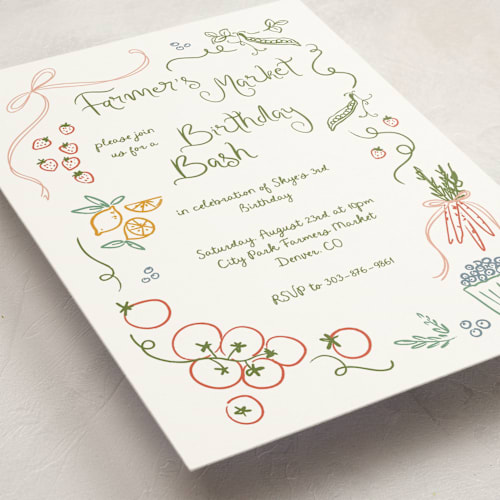 Farmer's Market
please join
us for a
Birthday
Bash
in celebration of Skye's 3rd
Birthday
Saturday August 23rd at 10pm
City Park Farmers Market
Denver CO
RSVP to 303-876-9861